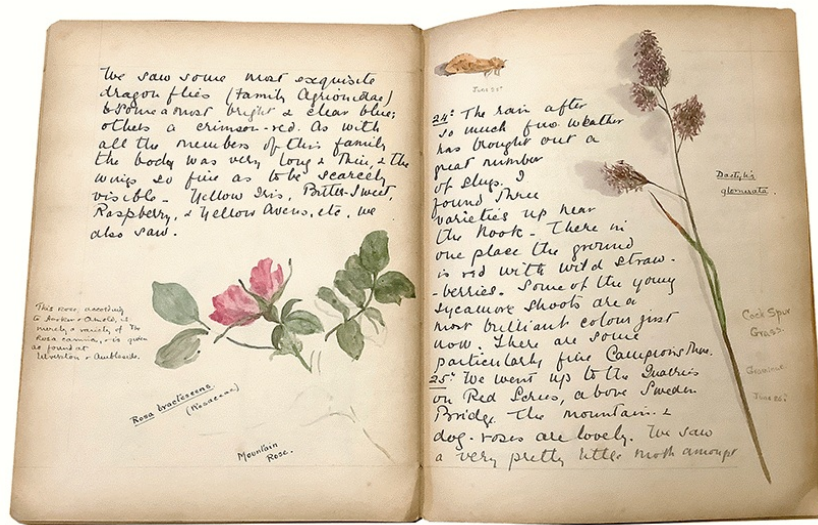 We saw some most exquisite
dragon flies (Family Agrionidae)
some a most bright & clear blue;
others a crimson-red. As with
all the members of this family
the body was very long & thin, & the
wings so fine as to be scarcely
visible. Yellow Iris, Bitter-Sweet,
Raspberry, & Yellow Avens, etc, we
also saw.
This rose, according
to Hooker & Arnold, is
merely a variety of the
Rosa canina, & is given
as found at
Ulverston & Ambleside.
Rosa bractescens.
(Rosaceae)
Mountain
Rose.
24th The rain after
so much fine weather
has brought out a
great number
of slugs. I
found three
varieties up near
the Nook. There in
one place the ground
is red with wild straw-
-berries. Some of the young
Sycamore shoots are a
most brilliant colour just
now. There are some
particularly fine Campions there.
25th We went up to the Quarries
on Red Screes, above Sweden
Bridge. The mountain &
dog-roses are lovely. We saw
a very pretty little moth amongst
Dactylis
glomerata.
Cock Spur
Grass.